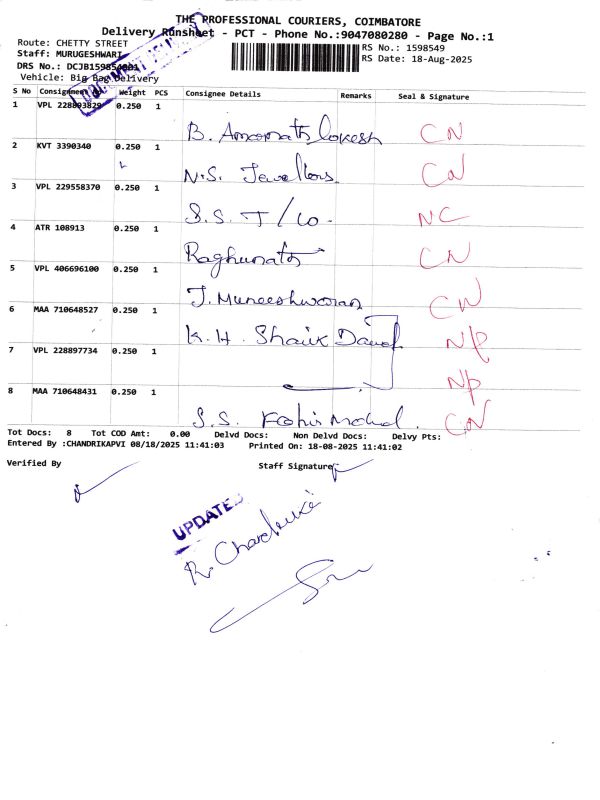 THE PROFESSIONAL COURIERS, COIMBATORE
Delivery Runsheet - PCT - Phone No.:9047080280 - Page No.:1
Route: CHETTY STREET
RS No.: 1598549
Staff: MURUGESHWARI
RS Date: 18-Aug-2025
DRS No.: DCJB1598549801
Vehicle: Big Bag Delivery
S No Consignment Weight PCS Consignee Details Remarks Seal & Signature
1 VPL 228803829 0.250 1
B. Amarnath Lokesh CN
2 KVT 3390340 0.250 1
N.S. Jewellers CN
3 VPL 229558370 0.250 1
S.S. T/Co. NC
4 ATR 108913 0.250 1
Raghunath CN
5 VPL 406696100 0.250 1
J. Muneeshwaran CN
6 MAA 710648527 0.250 1
K.H. Shaik Dawood NP
7 VPL 228897734 0.250 1
NP
8 MAA 710648431 0.250 1
S.S. Mahal. CN
Tot Docs: 8 Tot COD Amt: 0.00 Delvd Docs: Non Delvd Docs: Delvy Pts:
Entered By :CHANDRIKAPVI 08/18/2025 11:41:03 Printed On: 18-08-2025 11:41:02
Verified By Staff Signature
UPDATED